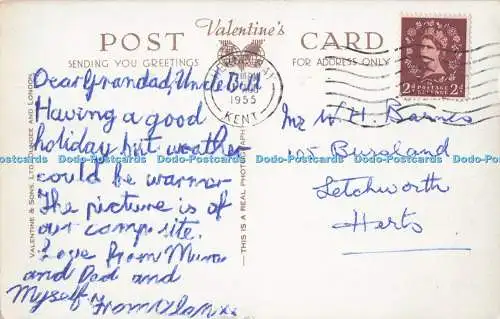 Valentine's
POST CARD
SENDING YOU GREETINGS FOR ADDRESS ONLY
1955
KENT
POSTAGE
2D 2D
Dear Grandad, Uncle Bill
Having a good
holiday but weather
could be warmer
The picture is of
our campsite.
Love from Mum
and Dad and
Myself. From
Mr W. H. Barnes
105 Bursland
Letchworth
Herts
VALENTINE & SONS, LTD., DUNDEE AND LONDON
THIS IS A REAL PHOTOGRAPH
Dodo-Postcards Dodo-Postcards Dodo-Postcards Dodo-Postcards Dodo-Postcards